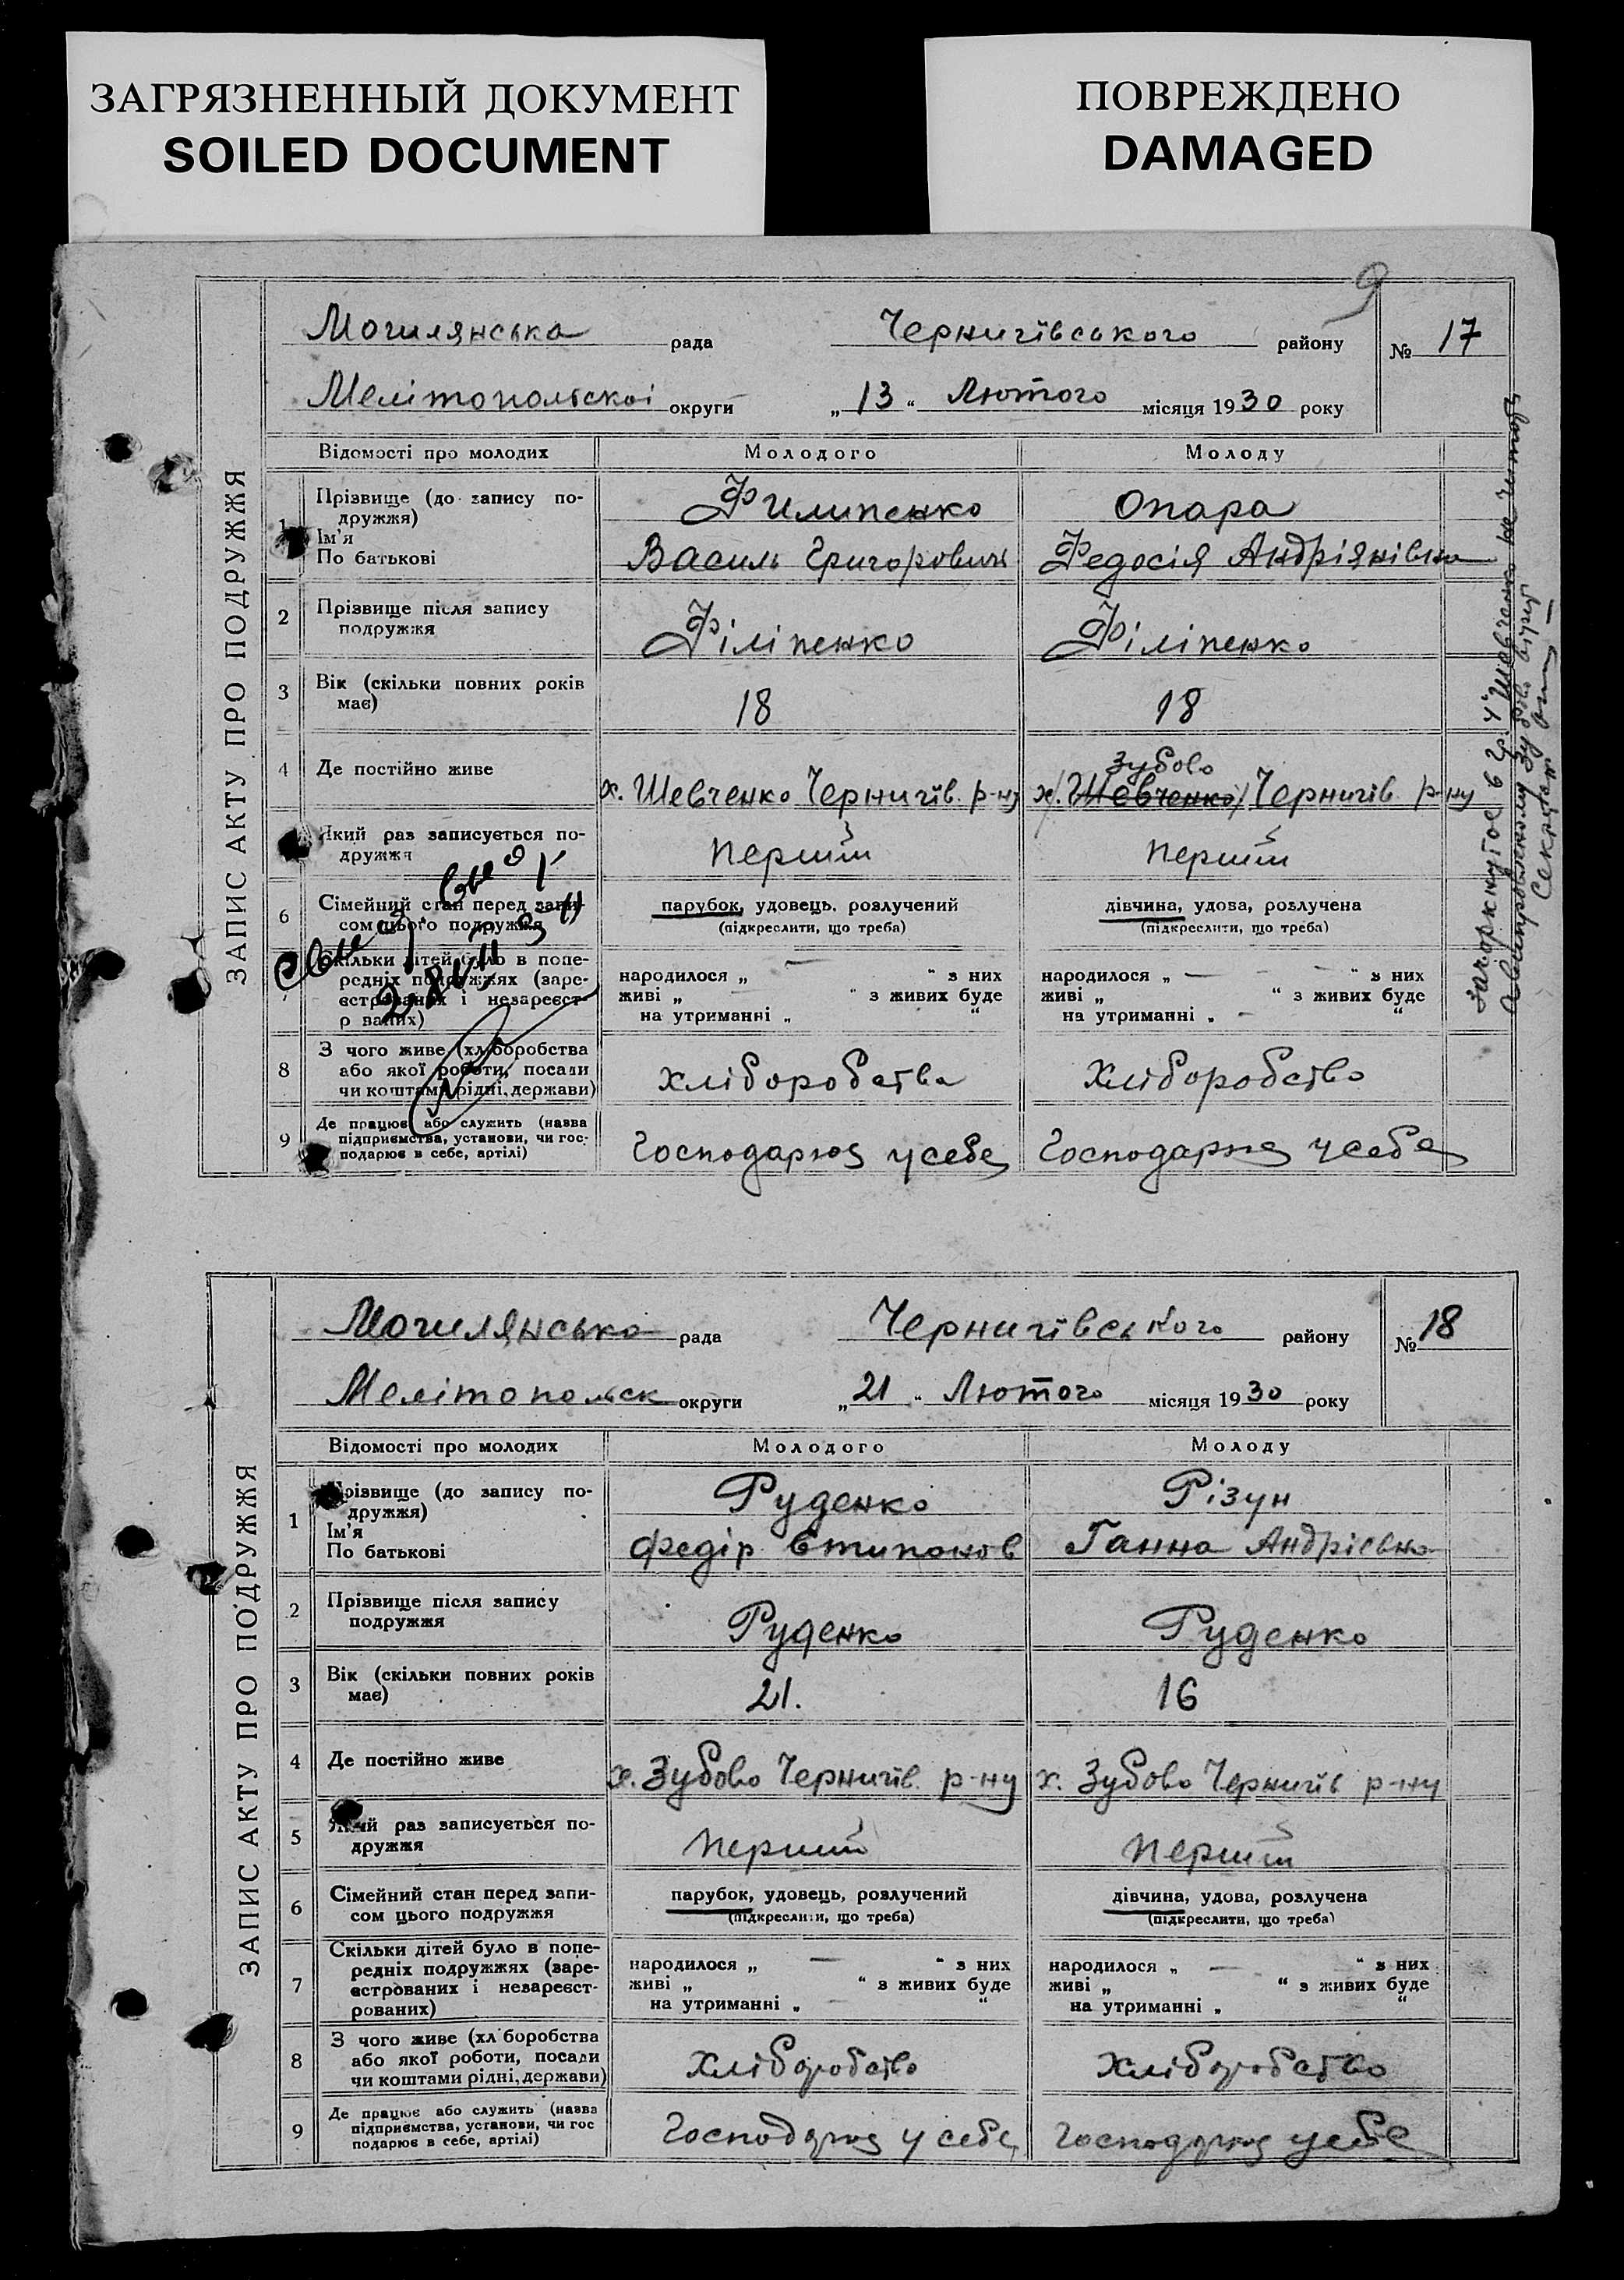 ЗАГРЯЗНЕННЫЙ ДОКУМЕНТ
SOILED DOCUMENT
ПОВРЕЖДЕНО
DAMAGED
9
ЗАПИС АКТУ ПРО ПОДРУЖЖЯ
Могилянська рада Чернигівського району № 17
Мелітопольскоі округи „13“ Лютого місяця 1930 року
Відомості про молодих Молодого Молоду
1 Прізвище (до запису по-
дружжя) Филипенко Опара
Ім'я
По батькові Василь Григорович Федосія Андріянівна
2 Прізвище після запису
подружжя Філіпенко Філіпенко
3 Вік (скільки повних років
має) 18 18
Зубово
4 Де постійно живе х. Шевченко Чернигів. р-ну х. Шевченко Чернигів. р-ну
Який раз записується по-
дружжя перший перший
6 Сімейний стан перед запи-
сом цього подружжя
парубок, удовець, розлучений дівчина, удова, розлучена
(підкреслити, що треба) (підкреслити, що треба)
7 Скільки дітей було в попе-
редніх подружжях (заре-
єстрованих і незареєст-
рованих)
народилося „ — “ з них народилося „ — “ з них
живі „ “ з живих буде живі „ “ з живих буде
на утриманні „ “ на утриманні „ - “
8 З чого живе (хліборобства
або якої роботи, посади
чи коштами рідні, держави) Хліборобства Хліборобство
9 Де працює або служить (назва
підприємства, установи, чи гос-
подарює в себе, артілі) Господарює у себе Господарює у себе
Зачоркнутое в гр. 4 "Шевченко" не читать
а Зубово вірить
Секретарь
ЗАПИС АКТУ ПРО ПОДРУЖЖЯ
Могилянсько рада Чернигівського району № 18
Мелітопольск округи „21“ Лютого місяця 1930 року
Відомості про молодих Молодого Молоду
1 Прізвище (до запису по-
дружжя) Руденко Різун
Ім'я
По батькові Федір Ганна Андрієвна
2 Прізвище після запису
подружжя Руденко Руденко
3 Вік (скільки повних років
має) 21. 16
4 Де постійно живе х. Зубово Чернигів. р-ну х. Зубово Чернигів р-ну
5 Який раз записується по-
дружжя перший перший
6 Сімейний стан перед запи-
сом цього подружжя
парубок, удовець, розлучений дівчина, удова, розлучена
(підкреслити, що треба) (підкреслити, що треба)
7 Скільки дітей було в попе-
редніх подружжях (заре-
єстрованих і незареєст-
рованих)
народилося „ — “ з них народилося „ — “ з них
живі „ “ з живих буде живі „ “ з живих буде
на утриманні „ “ на утриманні „ “
8 З чого живе (хліборобства
або якої роботи, посади
чи коштами рідні, держави) Хліборобство Хліборобство
9 Де працює або служить (назва
підприємства, установи, чи гос
подарює в себе, артілі) Господарює у себе Господарює у себе